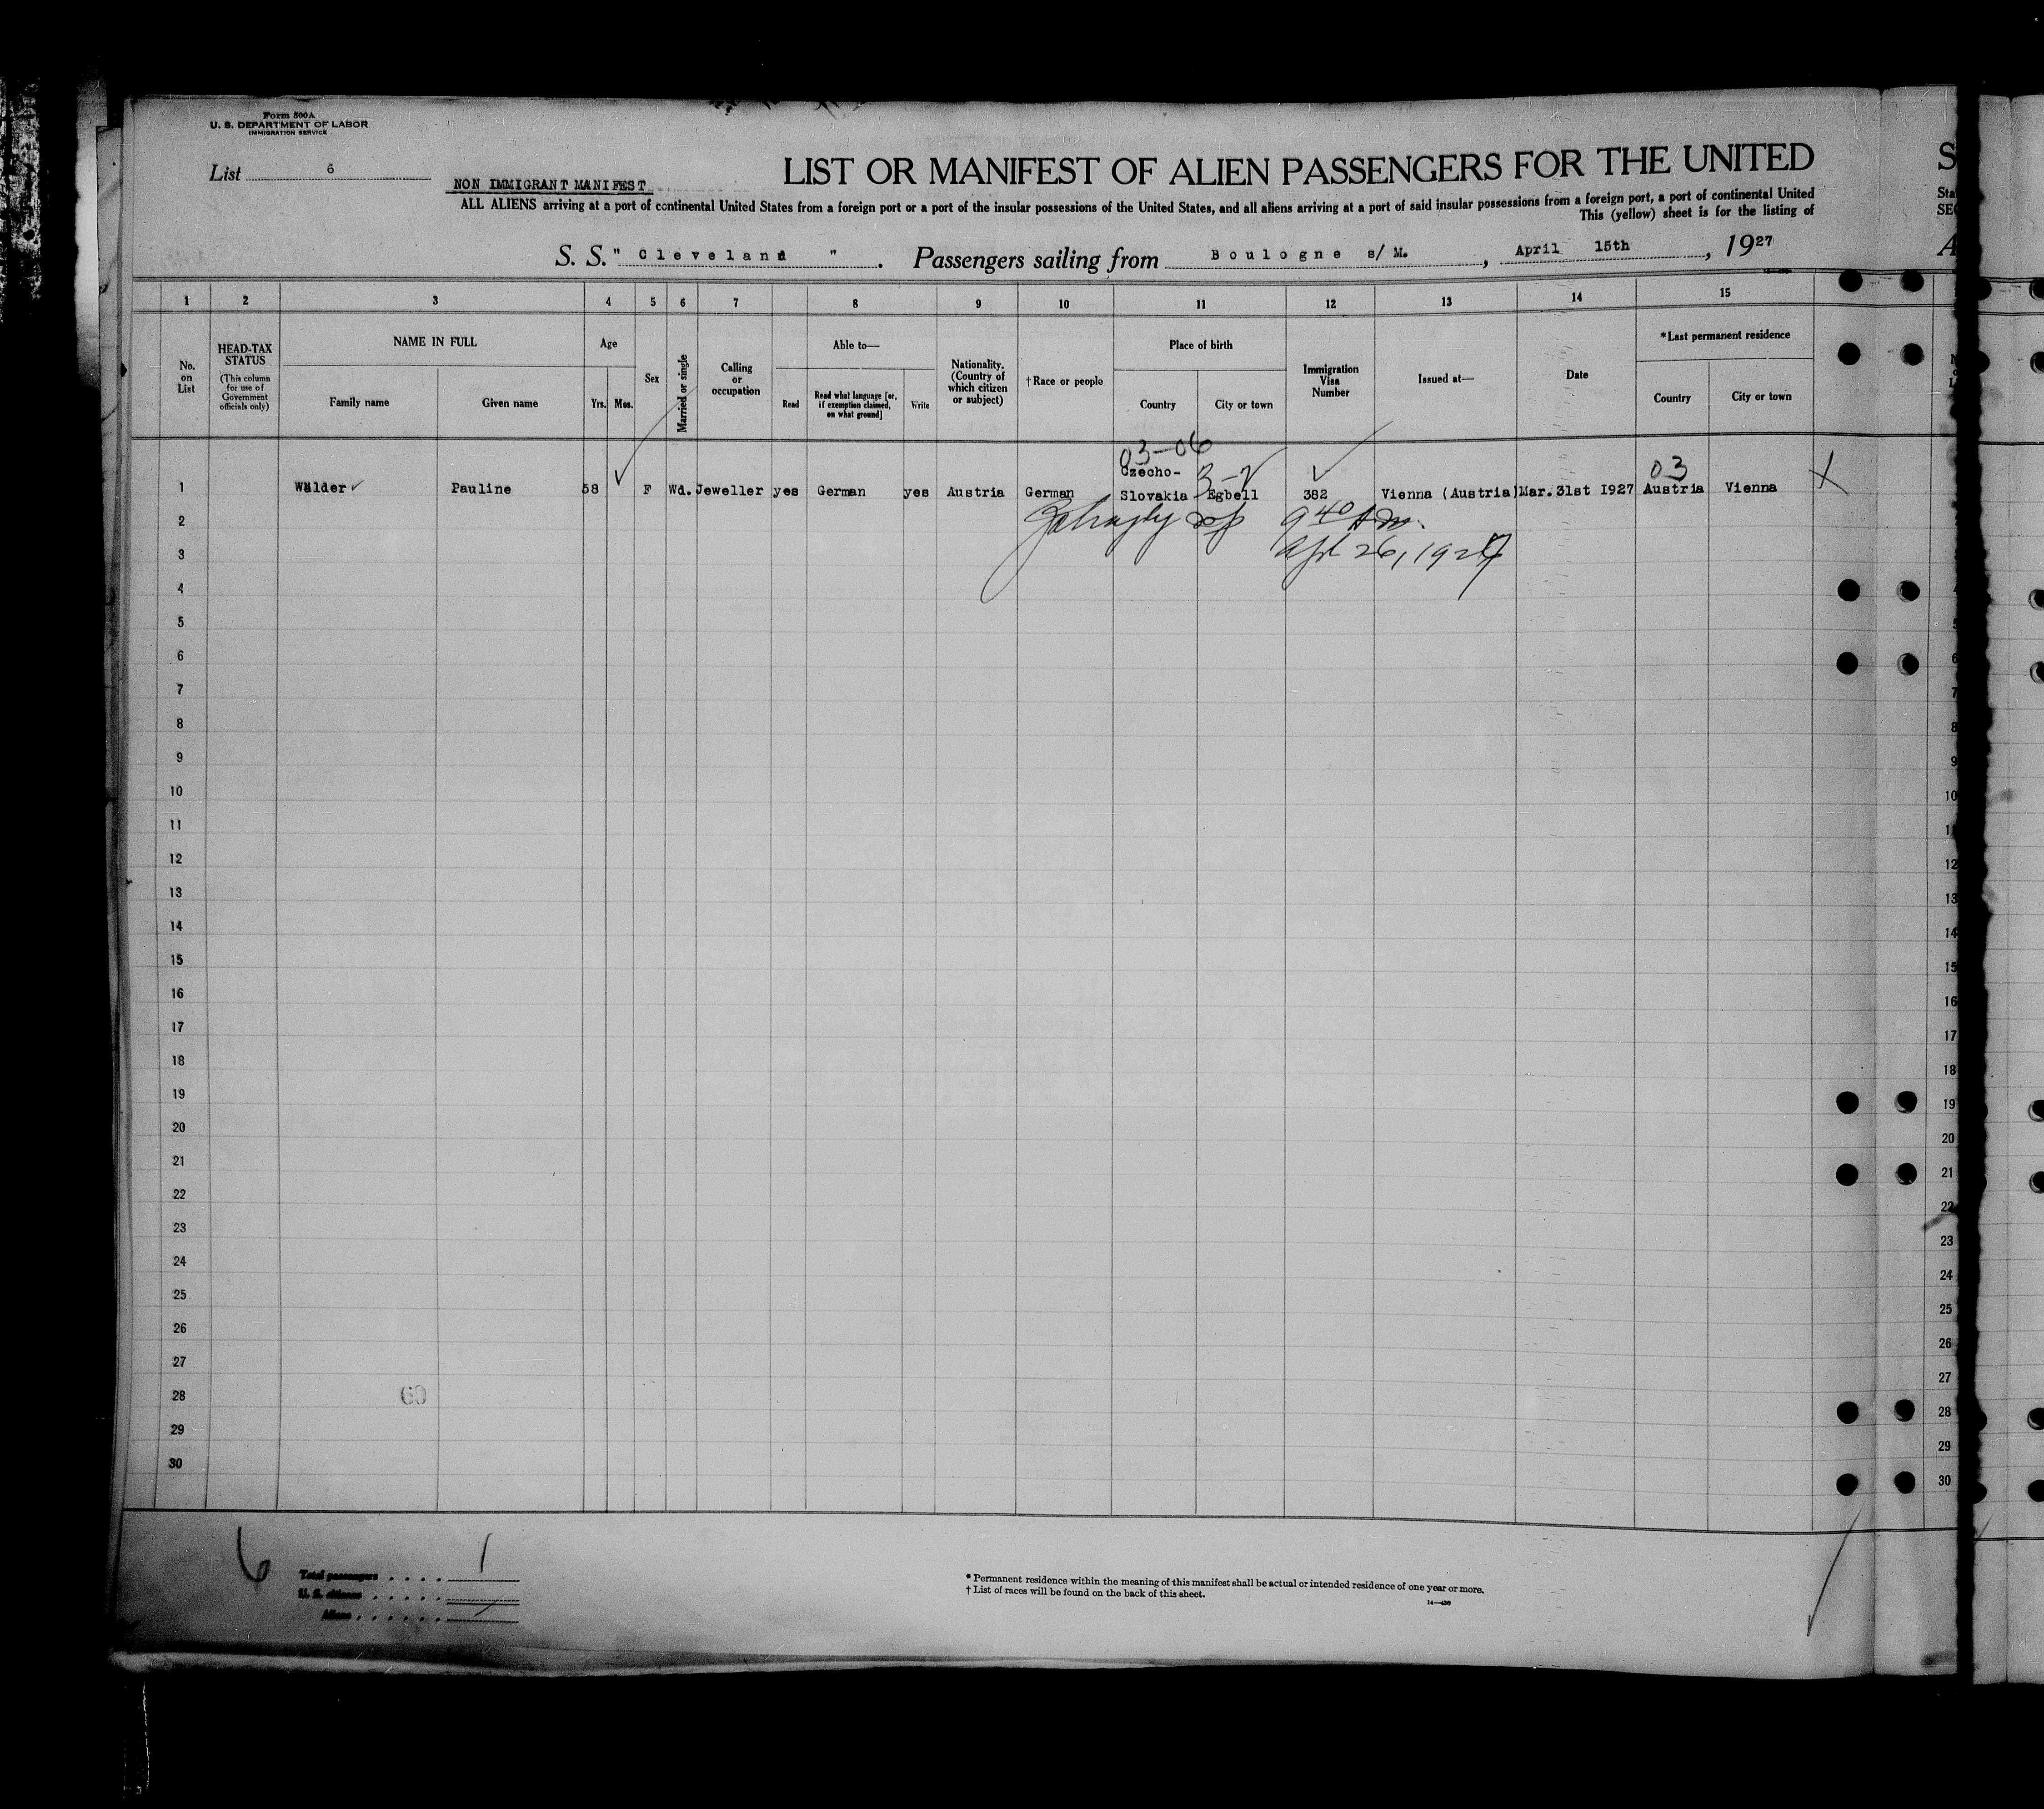 Form 500A
U. S. DEPARTMENT OF LABOR
IMMIGRATION SERVICE
List 6
NON IMMIGRANT MANIFEST
LIST OR MANIFEST OF ALIEN PASSENGERS FOR THE UNITED S
ALL ALIENS arriving at a port of continental United States from a foreign port or a port of the insular possessions of the United States, and all aliens arriving at a port of said insular possessions from a foreign port, a port of continental United
This (yellow) sheet is for the listing of
S. S. " Cleveland ". Passengers sailing from Boulogne s/M., April 15th, 1927
1 2 3 4 5 6 7 8 9 10 11 12 13 14 15
No. on List
HEAD-TAX STATUS
(This column for use of Government officials only)
NAME IN FULL
Family name
Given name
Age
Yrs. Mos.
Sex
Married or single
Calling or occupation
Able to—
Read
Read what language [or, if exemption claimed, on what ground]
Write
Nationality. (Country of which citizen or subject)
†Race or people
Place of birth
Country
City or town
Immigration Visa Number
Issued at—
Date
*Last permanent residence
Country
City or town
03-06
03
1 Wälder Pauline 58 F Wd. Jeweller yes German yes Austria German Czecho-Slovakia Egbell 382 Vienna (Austria) Mar. 31st 1927 Austria Vienna X
2 9 40 Am.
3 Apl 26, 1927
4
5
6
7
8
9
10
11
12
13
14
15
16
17
18
19
20
21
22
23
24
25
26
27
28 60
29
30
6
Total passengers 1
U. S. citizens
Aliens
* Permanent residence within the meaning of this manifest shall be actual or intended residence of one year or more.
† List of races will be found on the back of this sheet.